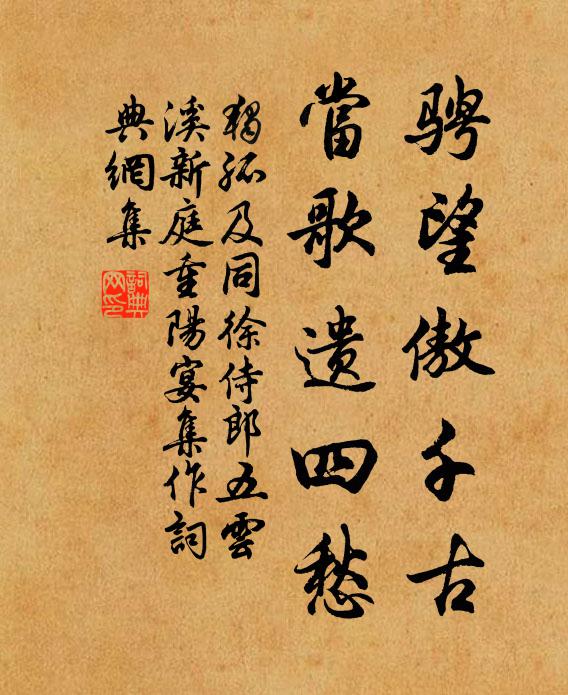 騁望傲千古
當歌遺四愁
獨孤及同徐侍郎五雲
溪新庭重陽宴集作詞
典網集
詞典網印